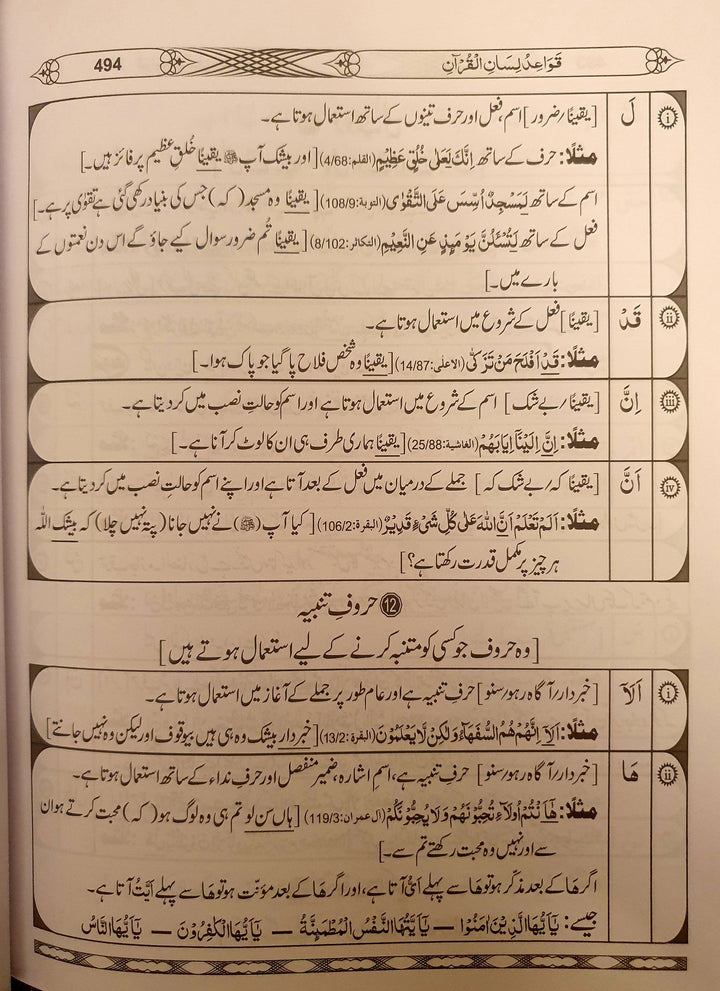 قَوَاعِدُ لِسَانِ الْقُرْآنِ 494
i لَ [یقینًا/ضرور] اسم، فعل اور حرف تینوں کے ساتھ استعمال ہوتا ہے۔
مثلًا: حرف کے ساتھ اِنَّكَ لَعَلٰى خُلُقٍ عَظِيْمٍ (القلم:4/68) [اور بیشک آپ ﷺ یقینًا خُلقِ عظیم پر فائز ہیں۔]
اسم کے ساتھ لَمَسْجِدٌ اُسِّسَ عَلَى التَّقْوٰى (التوبة:108/9) [یقینًا وہ مسجد (کہ) جس کی بنیاد رکھی گئی ہے تقوٰی پر ہے۔]
فعل کے ساتھ لَتُسْئَلُنَّ يَوْمَئِذٍ عَنِ النَّعِيْمِ (التکاثر:8/102) [یقینًا تُم ضرور سوال کیے جاؤ گے اس دن نعمتوں کے
بارے میں۔]
ii قَدْ [یقینًا] فعل کے شروع میں استعمال ہوتا ہے۔
مثلًا: قَدْ اَفْلَحَ مَنْ تَزَكّٰى (الاعلی:14/87) [یقینًا وہ شخص فلاح پا گیا جو پاک ہوا۔]
iii اِنَّ [یقینًا/بے شک] اسم کے شروع میں استعمال ہوتا ہے اور اسم کو حالتِ نصب میں کر دیتا ہے۔
مثلًا: اِنَّ اِلَيْنَآ اِيَابَهُمْ (الغاشیة:25/88) [یقینًا ہماری طرف ہی ان کا لوٹ کر آنا ہے۔]
iv اَنَّ [یقینًا کہ/بے شک کہ] جملے کے درمیان میں فعل کے بعد آتا ہے اور اپنے اسم کو حالتِ نصب میں کر دیتا ہے۔
مثلًا: اَلَمْ تَعْلَمْ اَنَّ اللّٰهَ عَلٰى كُلِّ شَىْءٍ قَدِيْرٌ (البقرة:106/2) [کیا آپ (ﷺ) نے نہیں جانا (پتہ نہیں چلا) کہ بیشک اللہ
ہر چیز پر مکمل قدرت رکھتا ہے؟]
12 حروفِ تنبیہ
[وہ حروف جو کسی کو متنبہ کرنے کے لیے استعمال ہوتے ہیں]
i اَلَآ [خبردار/آگاہ رہو/سنو] حرفِ تنبیہ ہے اور عام طور پر جملے کے آغاز میں استعمال ہوتا ہے۔
مثلًا: اَلَآ اِنَّهُمْ هُمُ السُّفَهَآءُ وَلٰكِنْ لَّا يَعْلَمُوْنَ (البقرة:13/2) [خبردار بیشک وہ ہی ہیں بیوقوف اور لیکن وہ نہیں جانتے]
ii هَا [خبردار/آگاہ رہو/سنو] حرفِ تنبیہ ہے، اسمِ اشارہ، ضمیرِ منفصل اور حرفِ نداء کے ساتھ استعمال ہوتا ہے۔
مثلًا: هٰٓاَنْتُمْ اُولَآءِ تُحِبُّوْنَهُمْ وَلَا يُحِبُّوْنَكُمْ (آل عمران:119/3) [ہاں سن لو تم ہی وہ لوگ ہو (کہ) محبت کرتے ہو ان
سے اور نہیں وہ محبت رکھتے تم سے۔]
اگر هَا کے بعد مذکّر ہو تو هَا سے پہلے اَيُّ آتا ہے، اور اگر هَا کے بعد مؤنّث ہو تو هَا سے پہلے اَيَّتُ آتا ہے۔
جیسے: يٰٓاَيُّهَا الَّذِيْنَ اٰمَنُوْا — يٰٓاَيَّتُهَا النَّفْسُ الْمُطْمَئِنَّةُ — يٰٓاَيُّهَا الْكٰفِرُوْنَ — يٰٓاَيُّهَا النَّاسُ